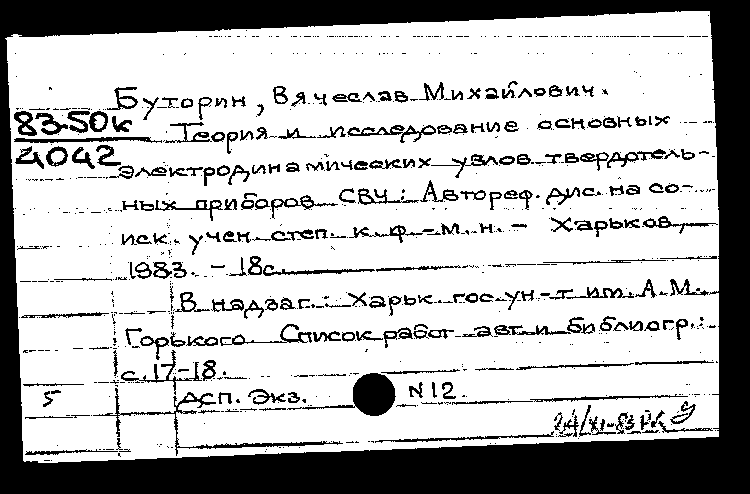 Буторин, Вячеслав Михайлович.
83-50к
4042
Теория и исследование основных
электродинамических узлов твердотель-
ных приборов СВЧ: Автореф. дис. на со-
иск. учен. степ. к. ф.-м. н. - Харьков,
1983. - 18с.
В надзаг.: Харьк. гос. ун-т им. А.М.
Горького. Список работ авт. и библиогр.:
с. 17-18.
5
ДСП. Экз. N 12.
24/XI-83